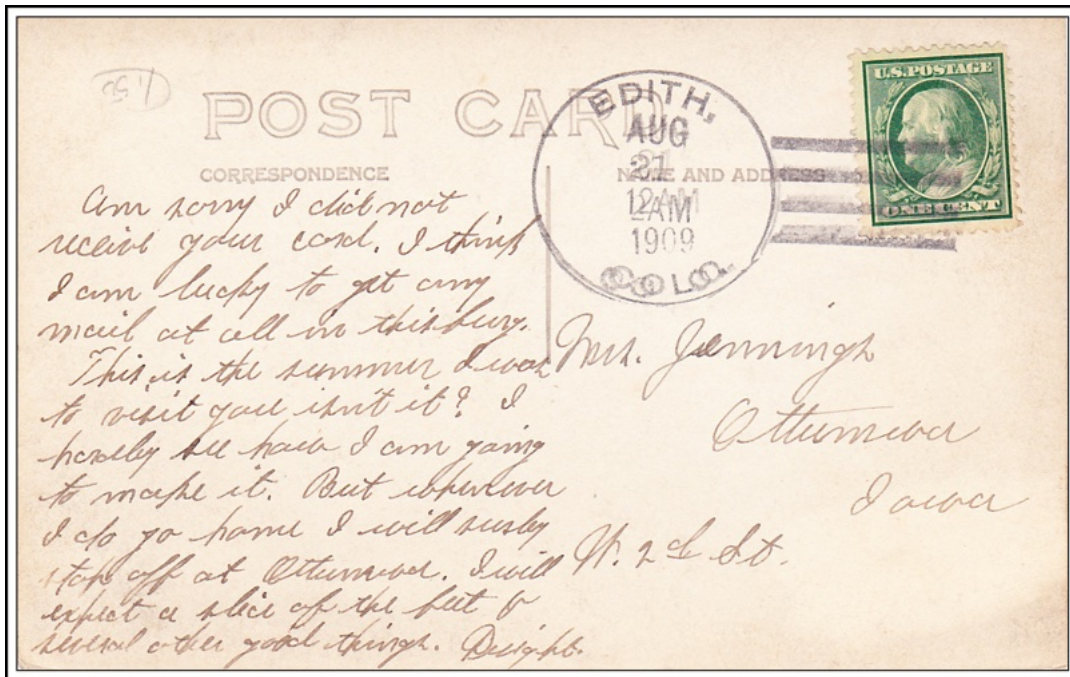 POST CARD
CORRESPONDENCE
NAME AND ADDRESS
EDITH,
AUG
21
1909
COLO.
U.S.POSTAGE
ONE CENT
Am sorry I did not
receive your card. I think
I am lucky to get any
mail at all in this burg.
This is the summer I was
to visit you isn't it? I
hardly see how I am going
to make it. But whenever
I do go home I will surely
stop off at Ottumwa. I will
expect a slice of the &
several other good things. Dwight.
Mrs. Jennings
Ottumwa
Iowa
W. 2d St.